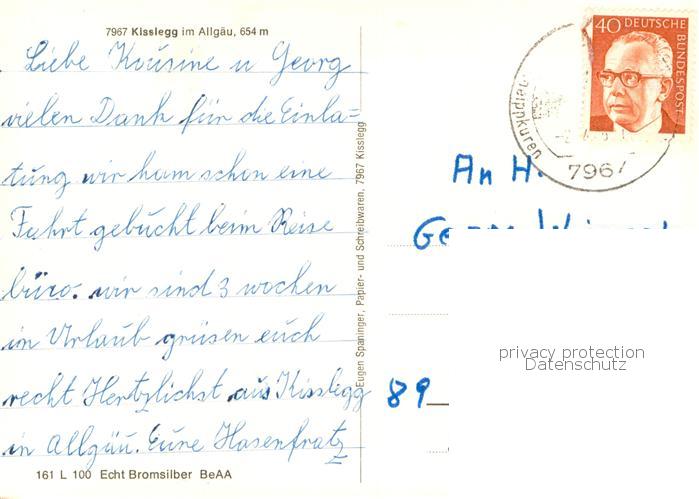 7967 Kisslegg im Allgäu, 654 m
Liebe Kousine u Georg
vielen Dank für die Einla=
tung wir ham schon eine
Fahrt gebucht beim Reise
büro. wir sind 3 wochen
im Urlaub grüsen euch
recht Hertzlichst aus Kisslegg
in Allgäu. Eure Hasenfratz
161 L 100 Echt Bromsilber BeAA
Eugen Spaninger, Papier- und Schreibwaren, 7967 Kisslegg
40 DEUTSCHE BUNDESPOST
neippkuren
7967
An H.
89
privacy protection
Datenschutz